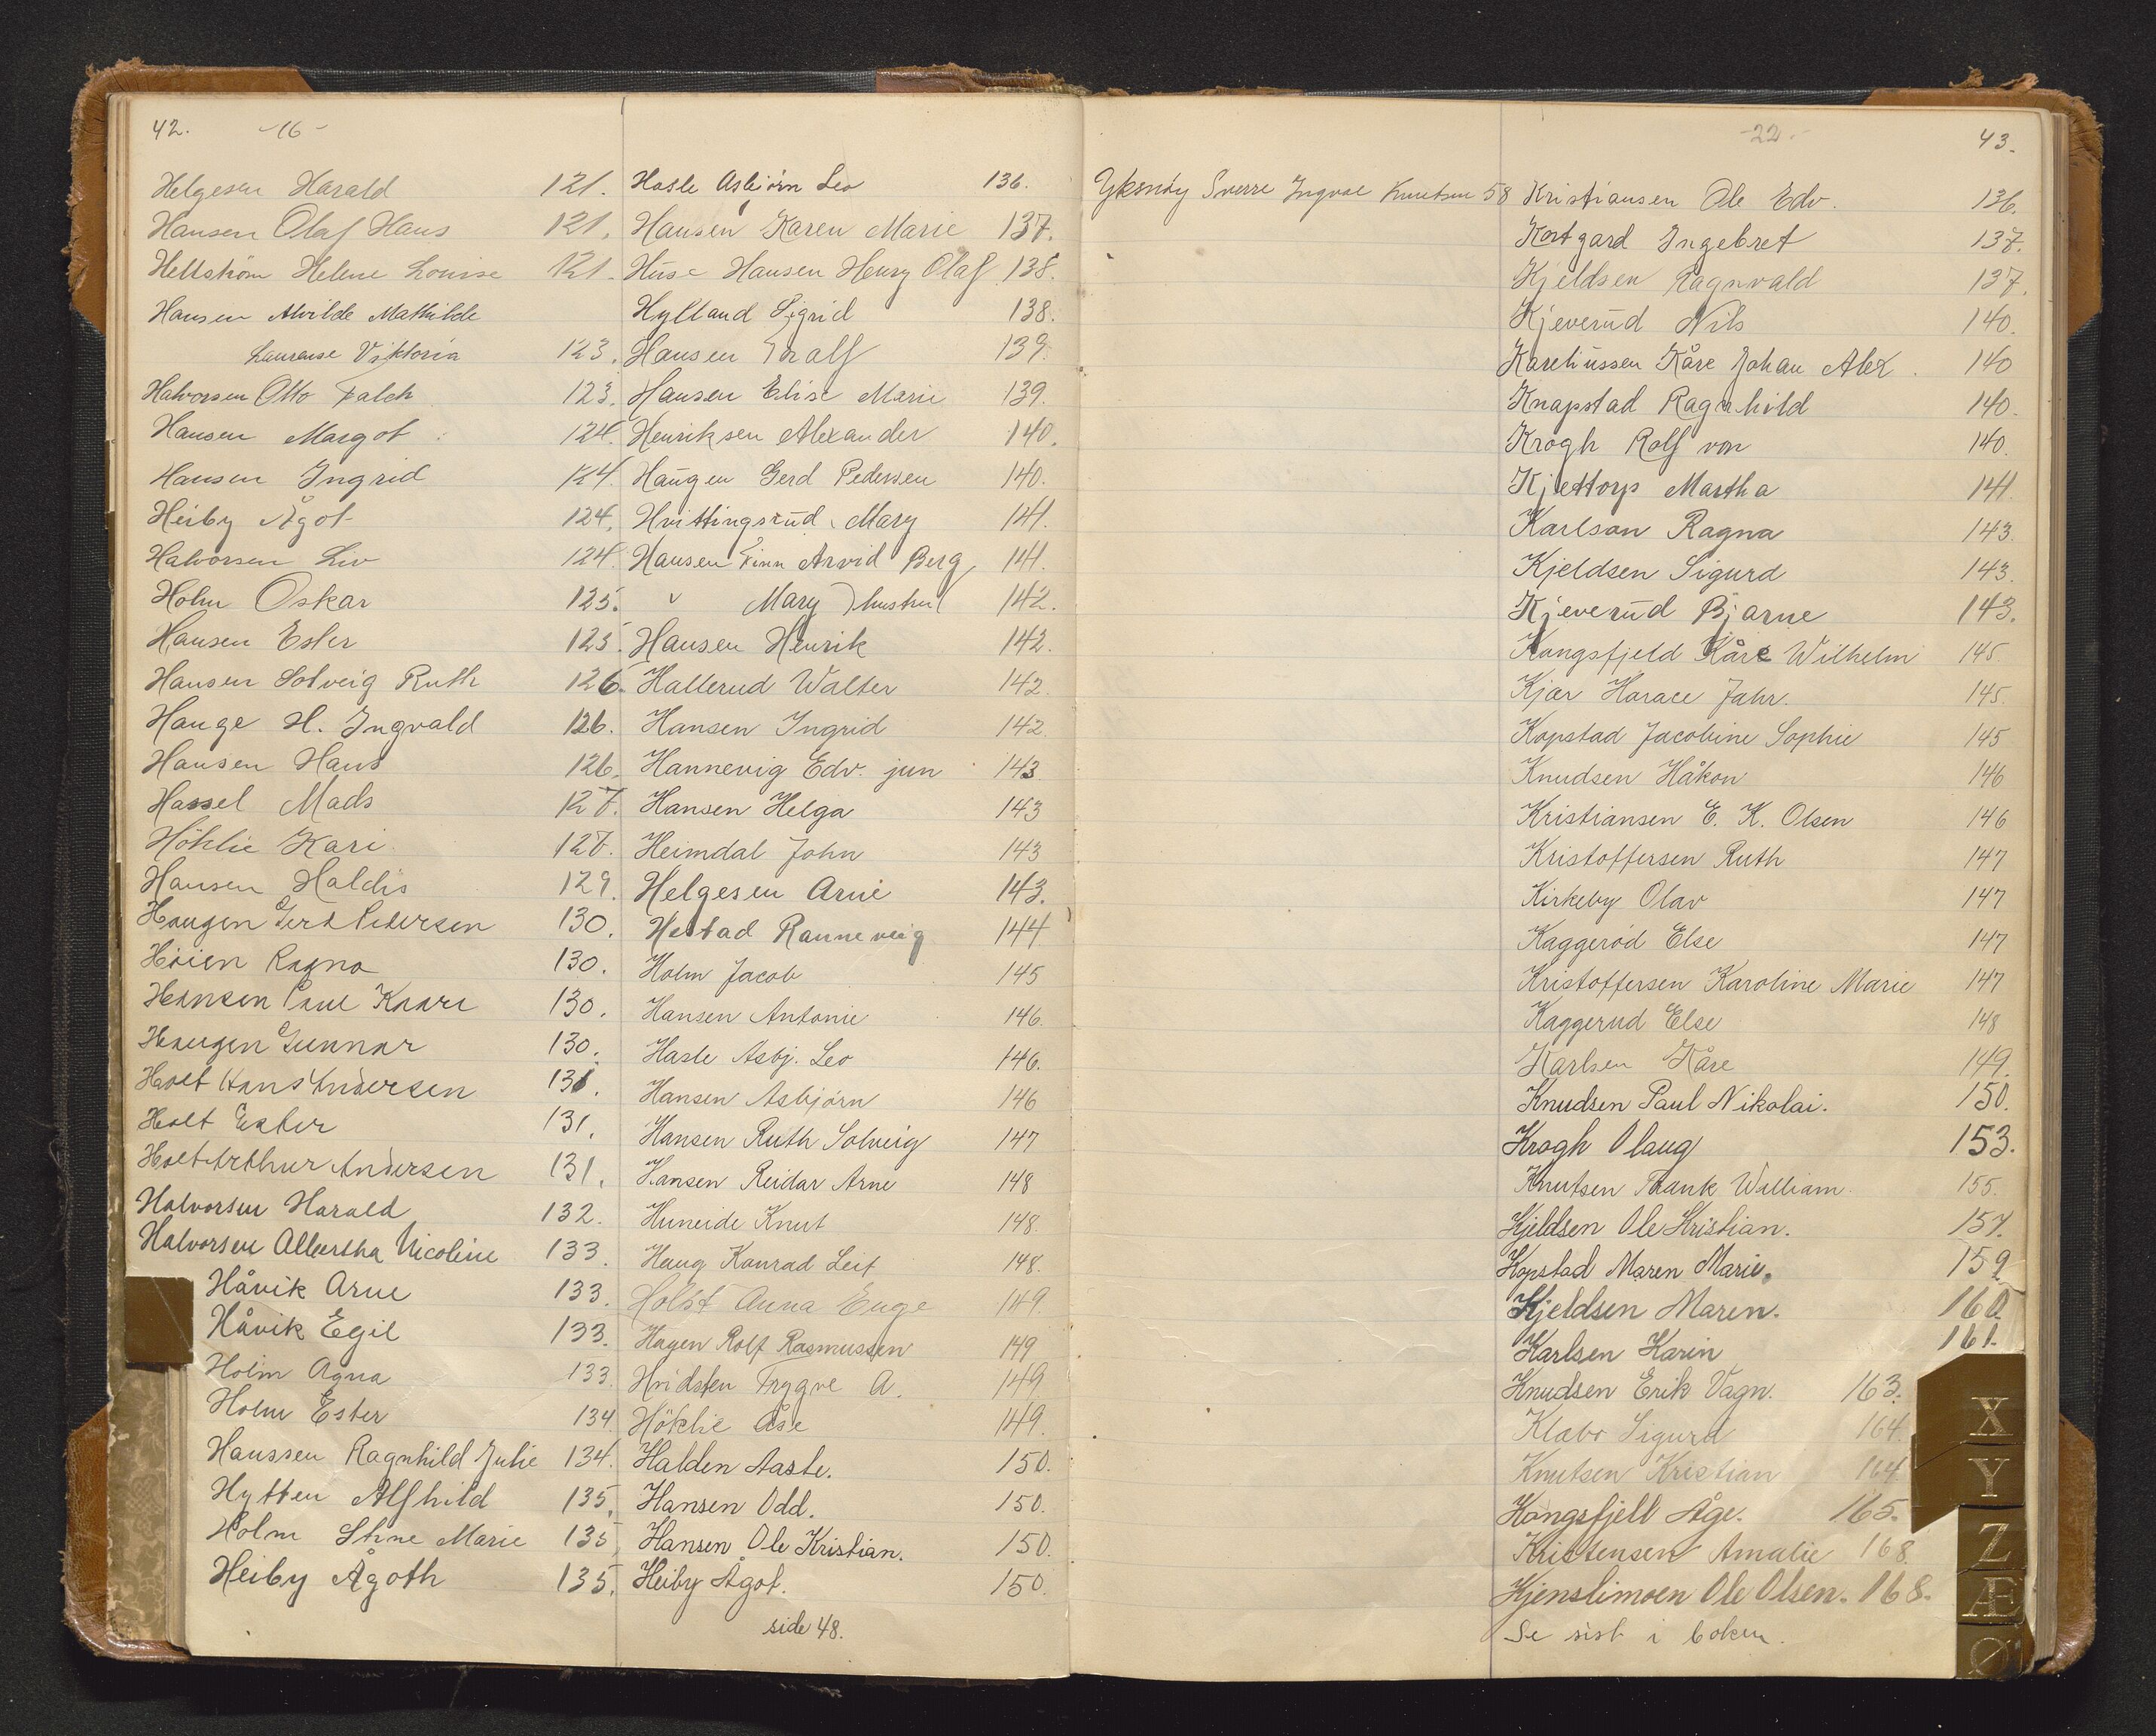 42. -16-
Helgesen Harald 121.
Hansen Olaf Hans 121.
Hellström Helene Louise 121.
Hansen Alvilde Mathilde
Laurense Viktoria 123.
Halvorsen Otto Falch 123.
Hansen Margot 124.
Hansen Ingrid 124.
Heiby Ågot 124.
Halvorsen Liv 124.
Holm Oskar 125.
Hansen Ester 125.
Hansen Solveig Ruth 126.
Hauge H. Ingvald 126.
Hansen Hans 126.
Hassel Mads 127.
Höklie Kari 127.
Hansen Haldis 129.
Haugen Gerd Pedersen 130.
Höien Ragna 130.
Hansen Paul Kaare 130.
Haugen Gunnar 130.
Holt Hans Andersen 131.
Holt Ester 131.
Holt Arthur Andersen 131.
Halvorsen Harald 132.
Halvorsen Albertha Nicoline 133.
Håvik Arne 133.
Håvik Egil 133.
Holm Agna 133.
Holm Ester 134
Hanssen Ragnhild Julie 134.
Hytten Alfhild 135.
Holm Stine Marie 135
Heiby Ågoth 135.
Hasle Asbjörn Leo 136.
Hansen Karen Marie 137.
Huse Hansen Henry Olaf 138.
Hylland Sigrid 138.
Hansen Tralf 139.
Hansen Elise Marie 139.
Henriksen Alexander 140.
Haugen Gerd Pedersen 140.
Hvittingsrud Mary 141.
Hansen Finn Arvid Berg 141.
" Mary hustru 142.
Hansen Henrik 142.
Hallerud Walter 142.
Hansen Ingrid 142
Hannevig Edv. jun 143
Hansen Helga 143
Heimdal John 143
Helgesen Arne 143.
Hestad Ranneveig 144
Holm Jacob 145
Hansen Antonie 146.
Hasle Asbj. Leo 146.
Hansen Asbjörn 146
Hansen Ruth Solveig 147
Hansen Reidar Arne 148
Huneide Knut 148.
Haug Konrad Leif 148.
Holst Anna Enge 149.
Hagen Rolf Rasmussen 149
Hvidsten Trygve A. 149
Höklie Åse 149.
Halden Aaste. 150.
Hansen Odd. 150.
Hansen Ole Kristian. 150.
Heiby Ågot. 150.
side 48.
-22- 43.
Yksnöy Sverre Ingvar Knutsen 58
Kristiansen Ole Edv. 136.
Kortgard Ingebret 137.
Kjeldsen Ragnvald 137.
Kjeverud Nils 140.
Kareliussen Kåre Johan Alex. 140
Knapstad Ragnhild 140.
Krogh Rolf von 140.
Kjettorp Martha 141
Karlson Ragna 143
Kjeldsen Sigurd 143
Kjeverud Bjarne 143.
Kongsfjeld Kåre Wilhelm 145
Kjær Horace Jahr. 145.
Kopstad Jacobine Sophie 145
Knudsen Håkon 146
Kristiansen E. K. Olsen 146
Kristoffersen Ruth 147
Kirkeby Olav 147
Kaggeröd Else 147
Kristoffersen Karoline Marie 147
Kaggerud Else 148
Karlsen Kåre 149.
Knudsen Paul Nikolai. 150.
Krogh Olaug 153.
Knutsen Frank William. 155.
Kjeldsen Ole Kristian. 157.
Kopstad Maren Marie. 159
Kjeldsen Maren. 160.
Karlsen Karin 161.
Knudsen Erik Vagn. 163.
Klæbo Sigurd 164.
Knutsen Kristian 164.
Kongsfjell Åge. 165.
Kristensen Amalie 168.
Kjenslimoen Ole Olsen. 168.
Se sist i boken.
X
Y
Z
Æ
Ø